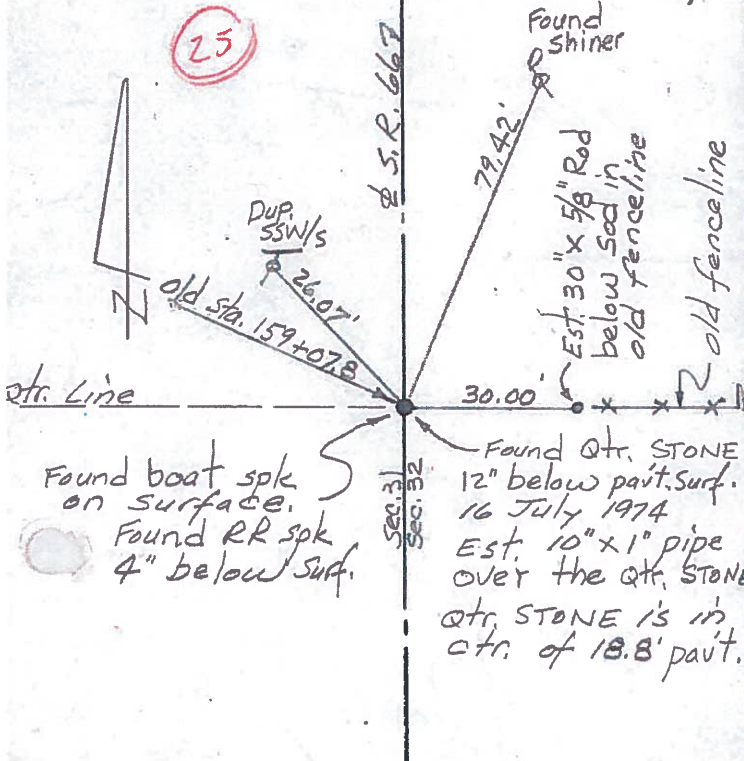 25
Found
Shiner
℄ S.R. 667
79.42'
Dup.
SSW/S
26.07'
old sta. 159+07.8
Est. 30" x 5/8" Rod
below sod in
old fenceline
old fenceline
Qtr. Line
30.00'
Found boat spk
on surface.
Found RR spk
4" below surf.
Sec. 31
Sec. 32
Found Qtr. STONE
12" below pav't. surf.
16 July 1974
Est. 10" x 1" pipe
over the Qtr. STONE
Qtr. STONE is in
ctr. of 18.8' pav't.